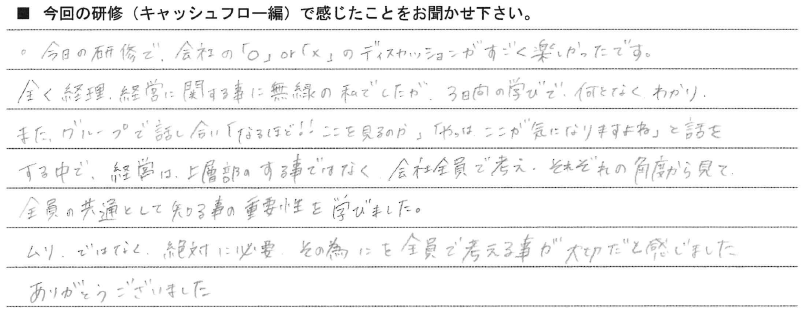 ■ 今回の研修（キャッシュフロー編）で感じたことをお聞かせ下さい。
。今日の研修で、会社の「O」or「×」のディスカッションがすごく楽しかったです。
全く経理、経営に関する事に無縁の私でしたが、3日間の学びで、何となくわかり、
また、グループで話し合い「なるほど!!ここを見るのか」「やっぱここが気になりますよね」と話を
する中で、経営は、上層部のする事ではなく、会社全員で考え、それぞれの角度から見て、
全員の共通として知る事の重要性を学びました。
ムリ、ではなく、絶対に必要、その為にを全員で考える事が大切だと感じました
ありがとうございました